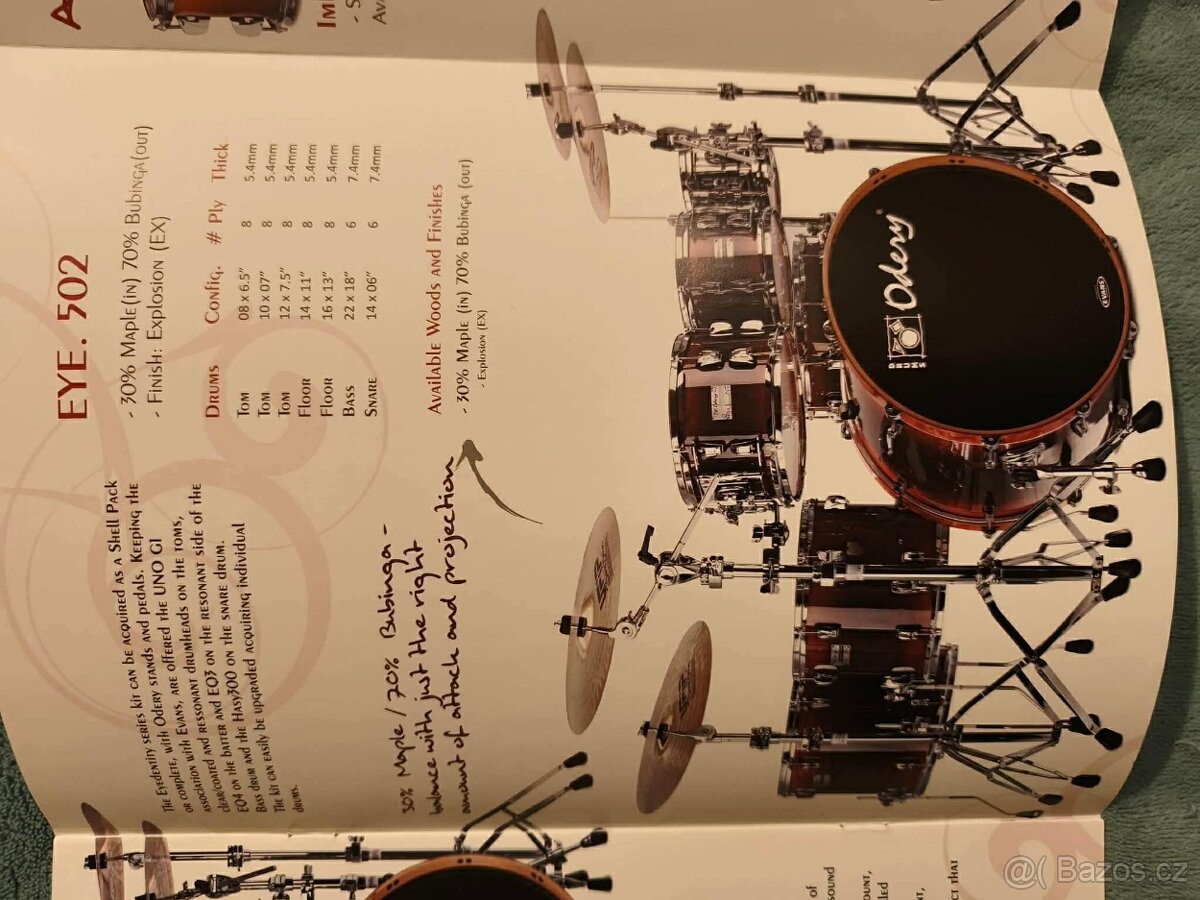 The Eyedentity series kit can be acquired as a Shell Pack
or complete, with Odery stands and pedals. Keeping the
association with Evans, are offered the UNO G1
clear/coated and ressonant drumheads on the toms,
EQ4 on the batter and EQ3 on the resonant side of the
Bass drum and the Hasy300 on the snare drum.
The kit can easily be upgraded acquiring individual
drums.
EYE. 502
- 30% Maple(in) 70% Bubinga(out)
- Finish: Explosion (EX)
Drums Config. # Ply Thick
Tom 08 x 6.5" 8 5.4mm
Tom 10 x 07" 8 5.4mm
Tom 12 x 7.5" 8 5.4mm
Floor 14 x 11" 8 5.4mm
Floor 16 x 13" 8 5.4mm
Bass 22 x 18" 6 7.4mm
Snare 14 x 06" 6 7.4mm
30% Maple / 70% Bubinga -
balance with just the right
amount of attack and projection
Available Woods and Finishes
- 30% Maple (in) 70% Bubinga (out)
- Explosion (EX)
Odery
DRUMS
EVANS
of
sound
led
ct that
@( Bazos.cz